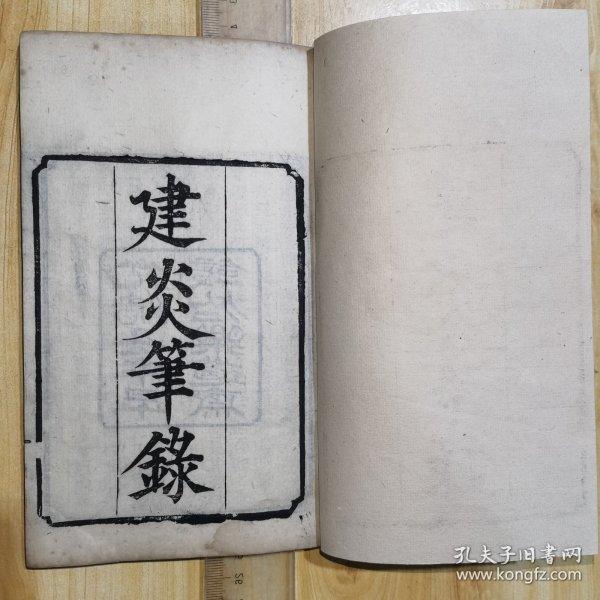 建炎筆錄
孔夫子旧書网
www.kongfz.com